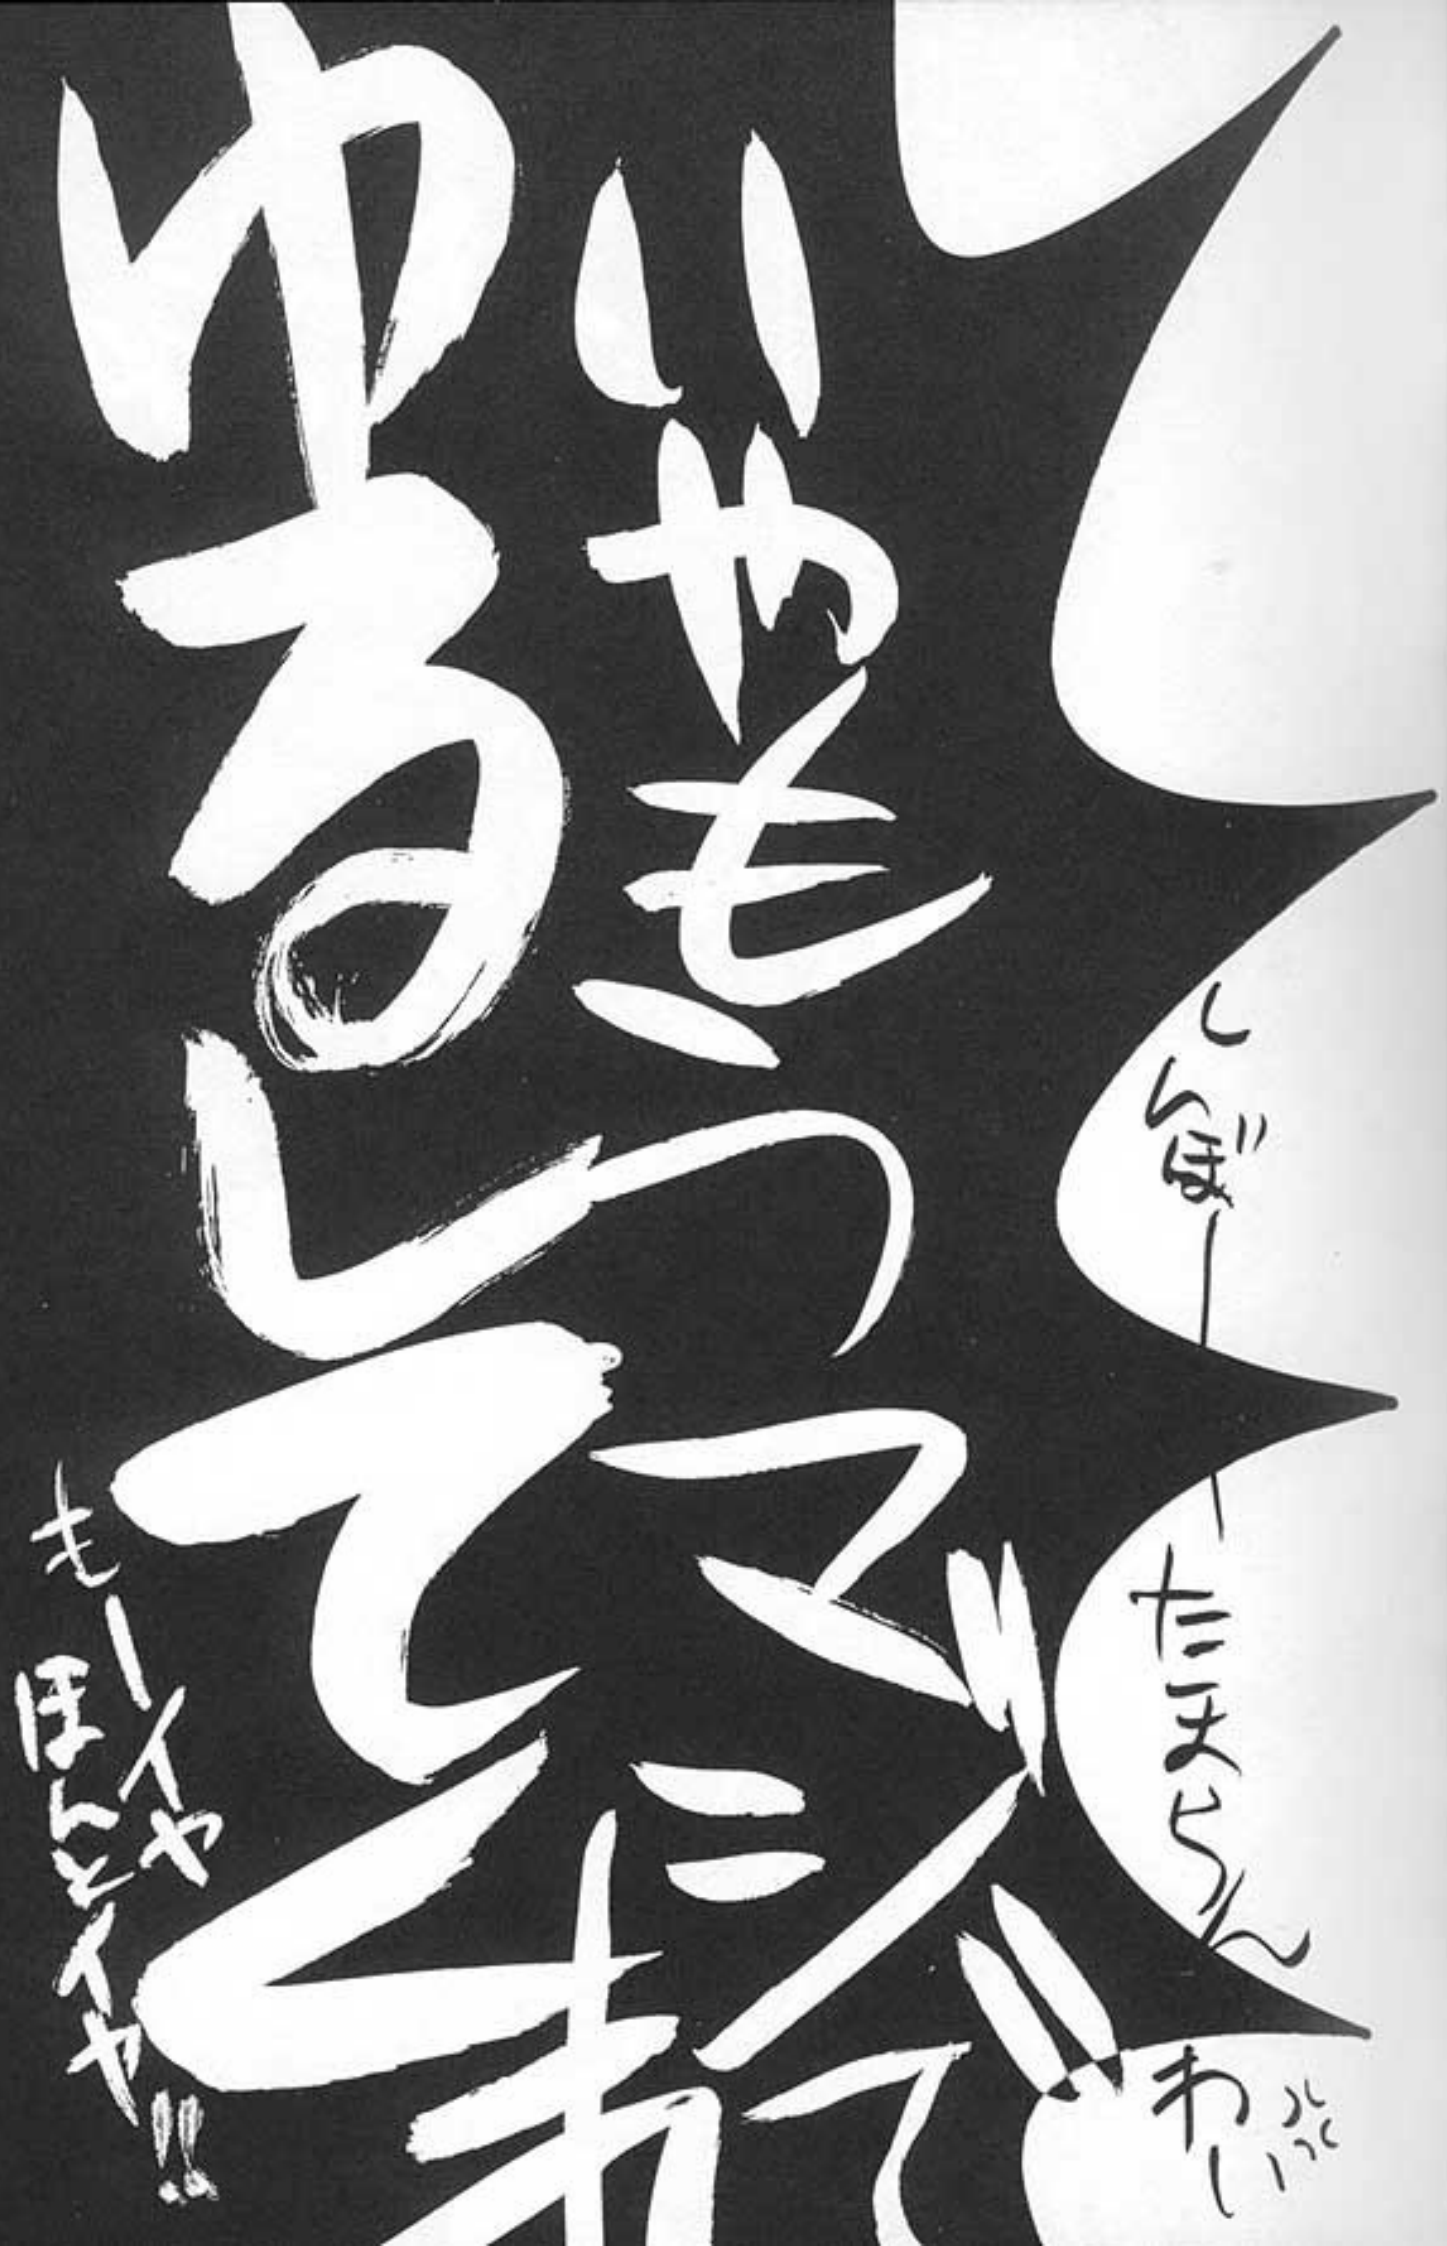 しんぼーたまらん
わい
いやもうマジで
ゆるしてくれ
もーイヤ
ほんとイヤ!!